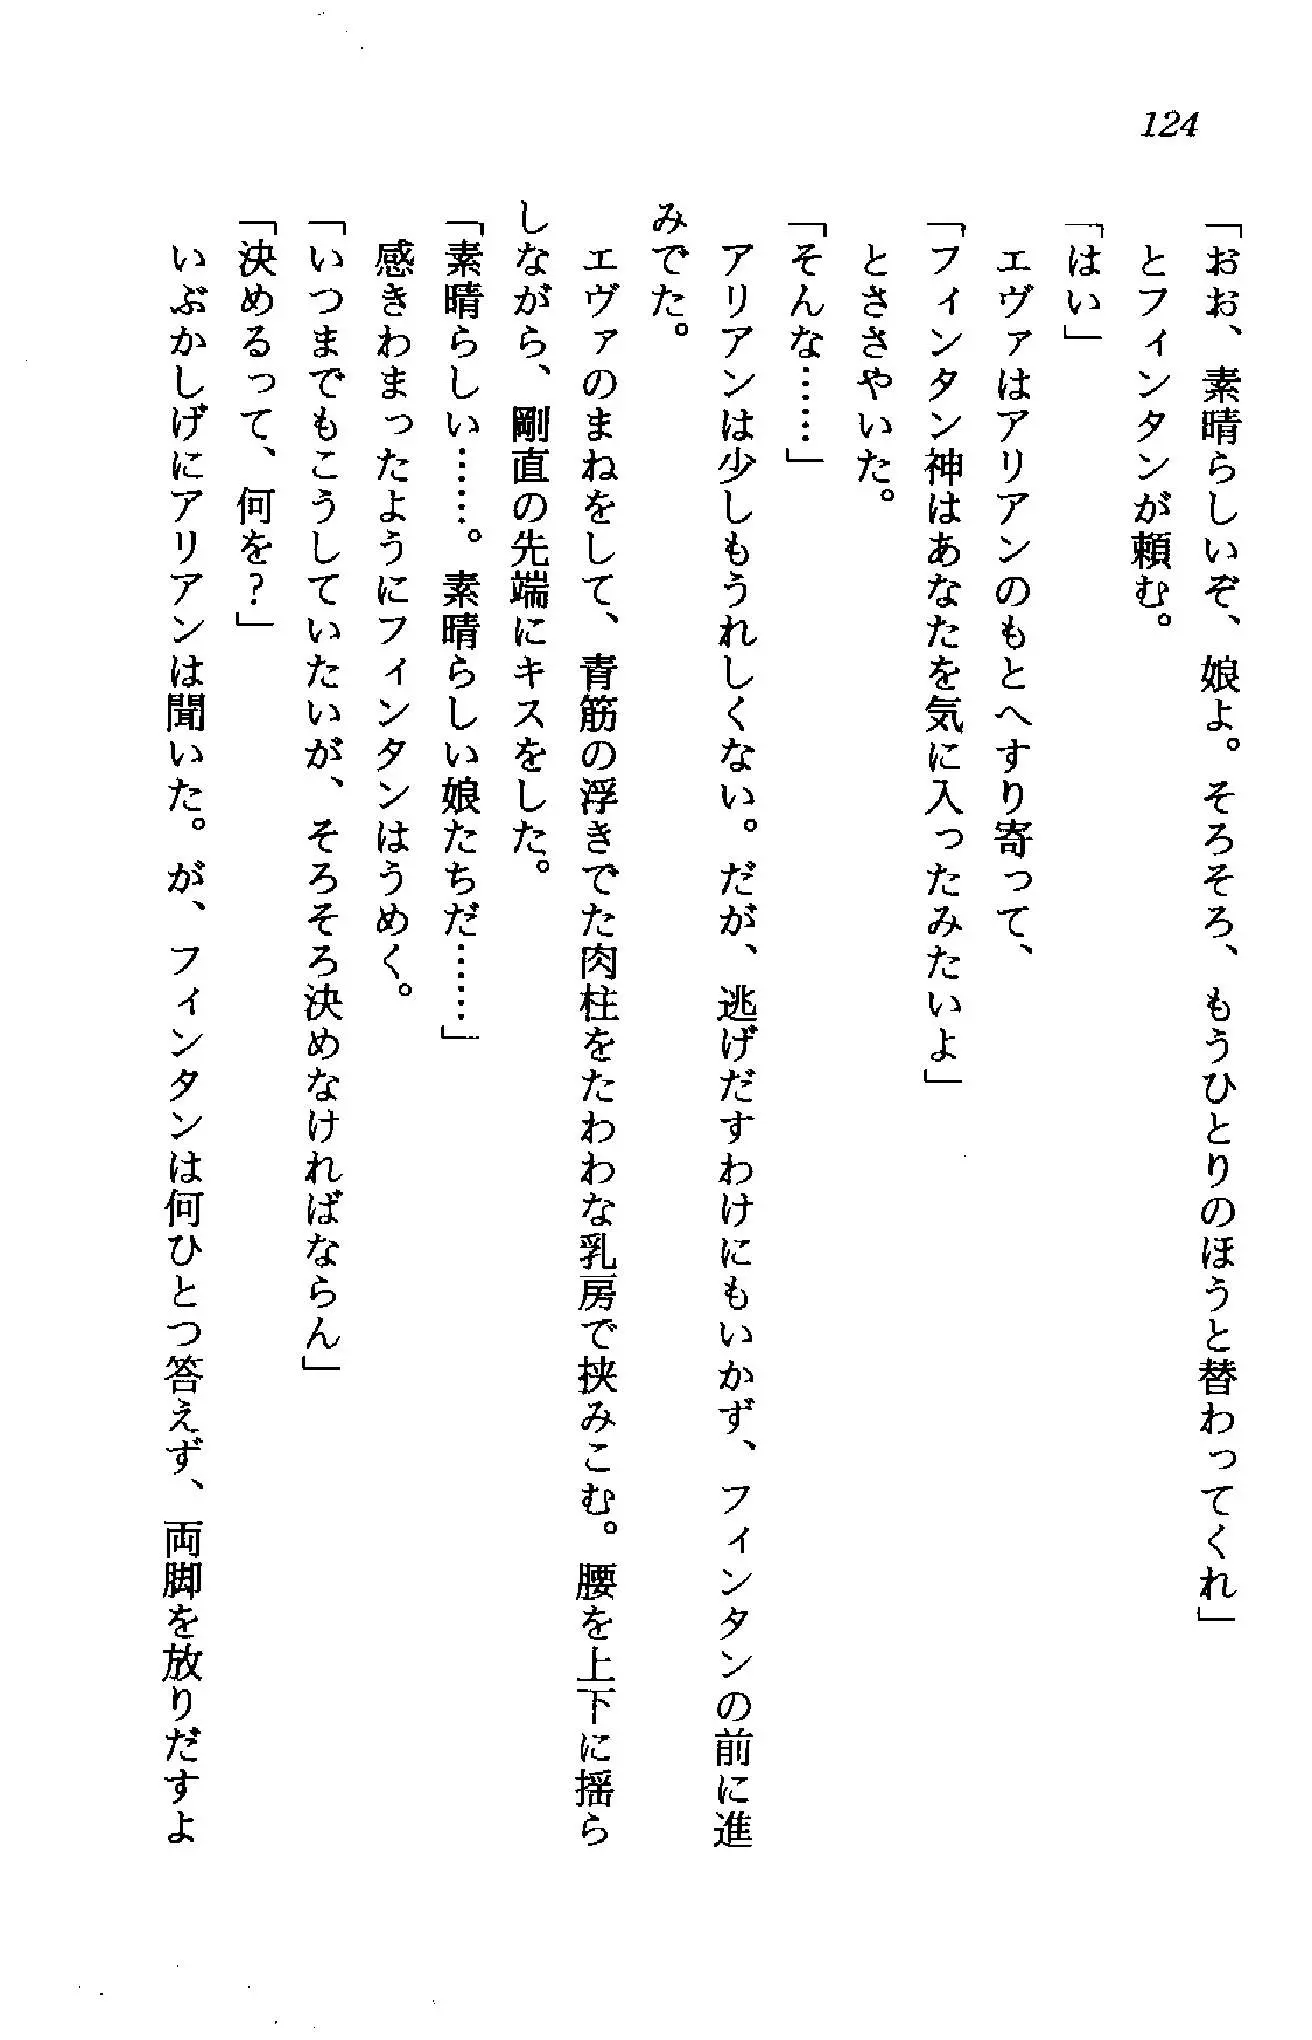 124
「おお、素晴らしいぞ、娘よ。そろそろ、もうひとりのほうと替わってくれ」
とフィンタンが頼む。
「はい」
エヴァはアリアンのもとへすり寄って、
「フィンタン神はあなたを気に入ったみたいよ」
とささやいた。
「そんな……」
アリアンは少しもうれしくない。だが、逃げだすわけにもいかず、フィンタンの前に進
みでた。
エヴァのまねをして、青筋の浮きでた肉柱をたわわな乳房で挟みこむ。腰を上下に揺ら
しながら、剛直の先端にキスをした。
「素晴らしい……。素晴らしい娘たちだ……」
感きわまったようにフィンタンはうめく。
「いつまでもこうしていたいが、そろそろ決めなければならん」
「決めるって、何を?」
いぶかしげにアリアンは聞いた。が、フィンタンは何ひとつ答えず、両脚を放りだすよ